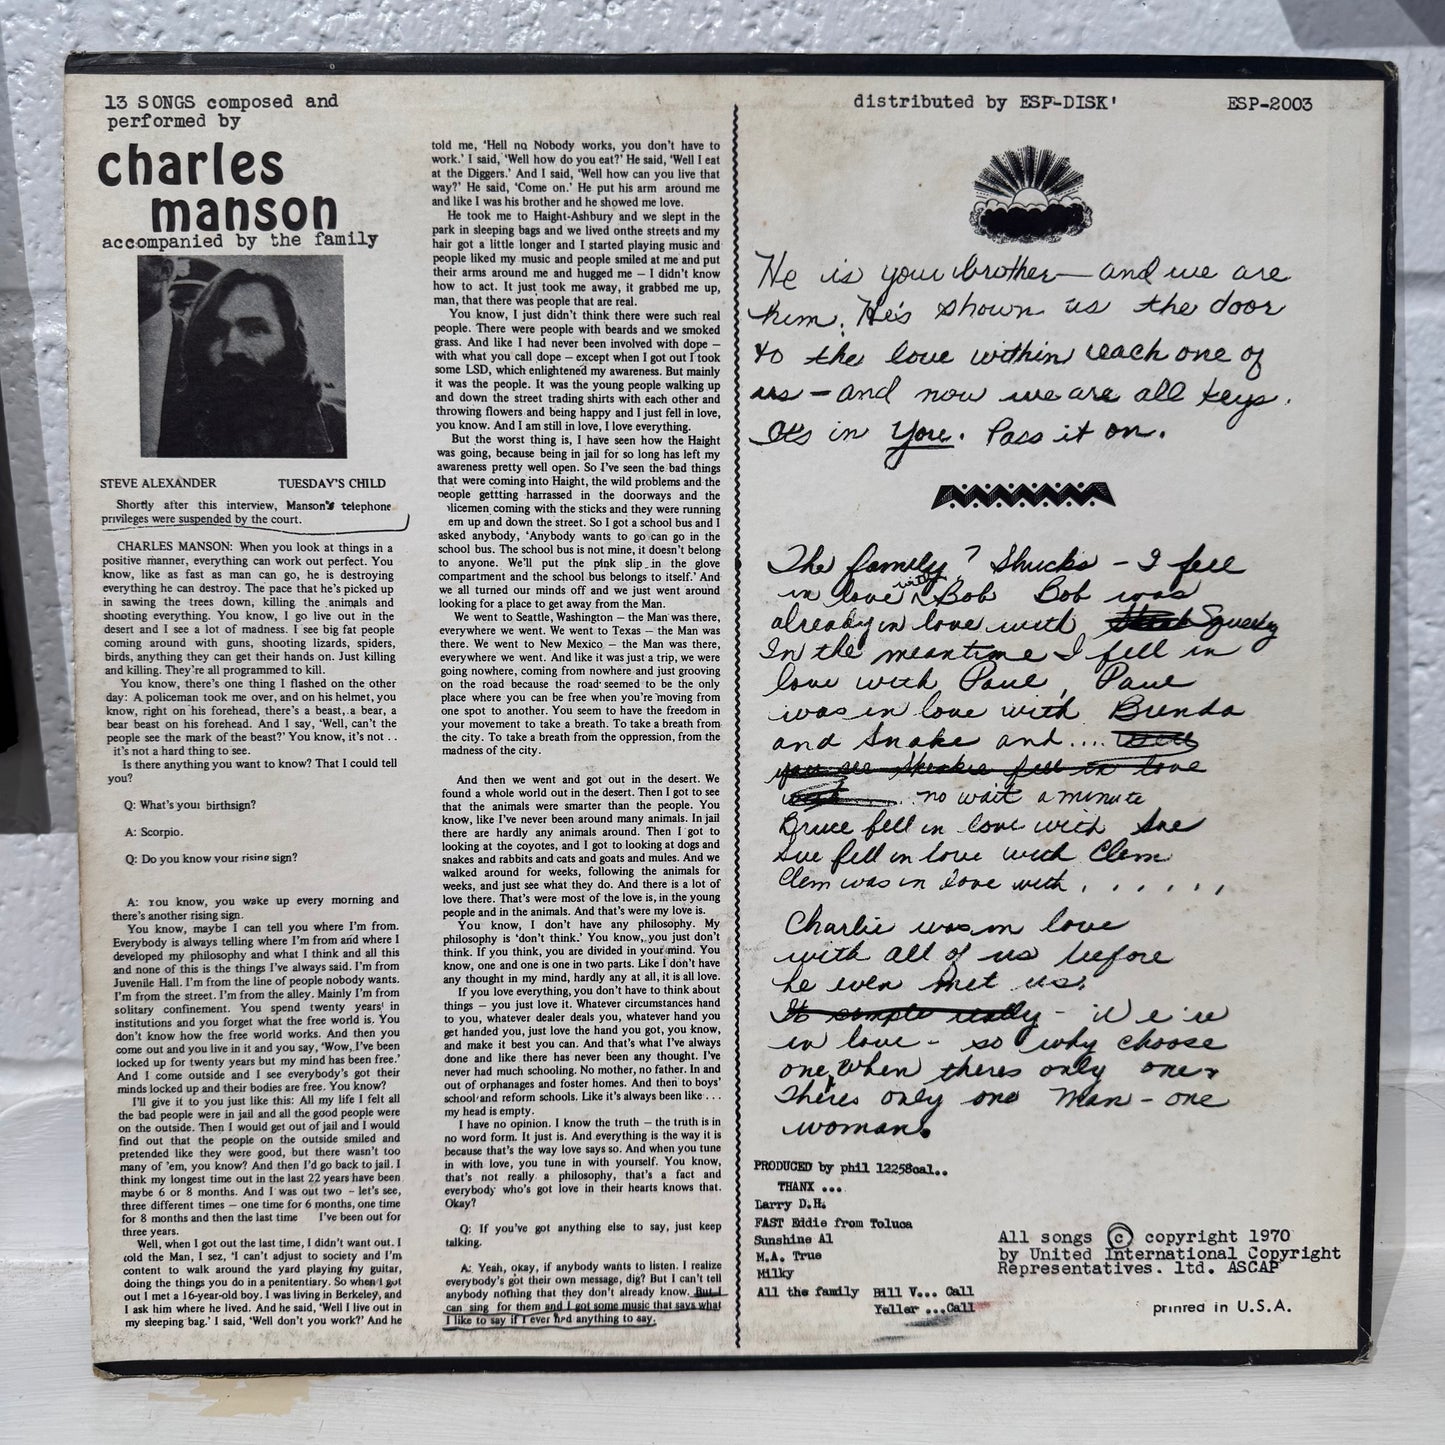 13 SONGS composed and
performed by
charles
manson
accompanied by the family
STEVE ALEXANDER TUESDAY'S CHILD
Shortly after this interview, Manson's telephone
privileges were suspended by the court.
CHARLES MANSON: When you look at things in a
positive manner, everything can work out perfect. You
know, like as fast as man can go, he is destroying
everything he can destroy. The pace that he's picked up
in sawing the trees down, killing the animals and
shooting everything. You know, I go live out in the
desert and I see a lot of madness. I see big fat people
coming around with guns, shooting lizards, spiders,
birds, anything they can get their hands on. Just killing
and killing. They're all programmed to kill.
You know, there's one thing I flashed on the other
day: A policeman took me over, and on his helmet, you
know, right on his forehead, there's a beast, a bear, a
bear beast on his forehead. And I say, 'Well, can't the
people see the mark of the beast?' You know, it's not . .
it's not a hard thing to see.
Is there anything you want to know? That I could tell
you?
Q: What's your birthsign?
A: Scorpio.
Q: Do you know your rising sign?
A: You know, you wake up every morning and
there's another rising sign.
You know, maybe I can tell you where I'm from.
Everybody is always telling where I'm from and where I
developed my philosophy and what I think and all this
and none of this is the things I've always said. I'm from
Juvenile Hall. I'm from the line of people nobody wants.
I'm from the street. I'm from the alley. Mainly I'm from
solitary confinement. You spend twenty years in
institutions and you forget what the free world is. You
don't know how the free world works. And then you
come out and you live in it and you say, 'Wow, I've been
locked up for twenty years but my mind has been free.'
And I come outside and I see everybody's got their
minds locked up and their bodies are free. You know?
I'll give it to you just like this: All my life I felt all
the bad people were in jail and all the good people were
on the outside. Then I would get out of jail and I would
find out that the people on the outside smiled and
pretended like they were good, but there wasn't too
many of 'em, you know? And then I'd go back to jail. I
think my longest time out in the last 22 years have been
maybe 6 or 8 months. And I was out two – let's see,
three different times – one time for 6 months, one time
for 8 months and then the last time I've been out for
three years.
Well, when I got out the last time, I didn't want out. I
told the Man, I sez, 'I can't adjust to society and I'm
content to walk around the yard playing my guitar,
doing the things you do in a penitentiary. So when I got
out I met a 16-year-old boy. I was living in Berkeley, and
I ask him where he lived. And he said, 'Well I live out in
my sleeping bag.' I said, 'Well don't you work?' And he
told me, 'Hell no. Nobody works, you don't have to
work.' I said, 'Well how do you eat?' He said, 'Well I eat
at the Diggers.' And I said, 'Well how can you live that
way?' He said, 'Come on.' He put his arm around me
and like I was his brother and he showed me love.
He took me to Haight-Ashbury and we slept in the
park in sleeping bags and we lived onthe streets and my
hair got a little longer and I started playing music and
people liked my music and people smiled at me and put
their arms around me and hugged me – I didn't know
how to act. It just took me away, it grabbed me up,
man, that there was people that are real.
You know, I just didn't think there were such real
people. There were people with beards and we smoked
grass. And like I had never been involved with dope –
with what you call dope – except when I got out I took
some LSD, which enlightened my awareness. But mainly
it was the people. It was the young people walking up
and down the street trading shirts with each other and
throwing flowers and being happy and I just fell in love,
you know. And I am still in love, I love everything.
But the worst thing is, I have seen how the Haight
was going, because being in jail for so long has left my
awareness pretty well open. So I've seen the bad things
that were coming into Haight, the wild problems and the
people gettting harrassed in the doorways and the
olicemen coming with the sticks and they were running
em up and down the street. So I got a school bus and I
asked anybody, 'Anybody wants to go can go in the
school bus. The school bus is not mine, it doesn't belong
to anyone. We'll put the pink slip in the glove
compartment and the school bus belongs to itself.' And
we all turned our minds off and we just went around
looking for a place to get away from the Man.
We went to Seattle, Washington – the Man was there,
everywhere we went. We went to Texas – the Man was
there. We went to New Mexico – the Man was there,
everywhere we went. And like it was just a trip, we were
going nowhere, coming from nowhere and just grooving
on the road because the road seemed to be the only
place where you can be free when you're moving from
one spot to another. You seem to have the freedom in
your movement to take a breath. To take a breath from
the city. To take a breath from the oppression, from the
madness of the city.
And then we went and got out in the desert. We
found a whole world out in the desert. Then I got to see
that the animals were smarter than the people. You
know, like I've never been around many animals. In jail
there are hardly any animals around. Then I got to
looking at the coyotes, and I got to looking at dogs and
snakes and rabbits and cats and goats and mules. And we
walked around for weeks, following the animals for
weeks, and just see what they do. And there is a lot of
love there. That's were most of the love is, in the young
people and in the animals. And that's were my love is.
You know, I don't have any philosophy. My
philosophy is 'don't think.' You know, you just don't
think. If you think, you are divided in your mind. You
know, one and one is one in two parts. Like I don't have
any thought in my mind, hardly any at all, it is all love.
If you love everything, you don't have to think about
things – you just love it. Whatever circumstances hand
to you, whatever dealer deals you, whatever hand you
get handed you, just love the hand you got, you know,
and make it best you can. And that's what I've always
done and like there has never been any thought. I've
never had much schooling. No mother, no father. In and
out of orphanages and foster homes. And then to boys'
school and reform schools. Like it's always been like . . .
my head is empty.
I have no opinion. I know the truth – the truth is in
no word form. It just is. And everything is the way it is
because that's the way love says so. And when you tune
in with love, you tune in with yourself. You know,
that's not really a philosophy, that's a fact and
everybody who's got love in their hearts knows that.
Okay?
Q: If you've got anything else to say, just keep
talking.
A: Yeah, okay, if anybody wants to listen. I realize
everybody's got their own message, dig? But I can't tell
anybody nothing that they don't already know. But I
can sing for them and I got some music that says what
I like to say if I ever had anything to say.
distributed by ESP-DISK' ESP-2003
He is your brother — and we are
him. He's shown us the door
to the love within each one of
us — and now we are all keys.
It's in You. Pass it on.
The family? Shucks - I fell
in love with Bob Bob was
already in love with Squeaky
In the meantime I fell in
love with Paul, Paul
was in love with Brenda
and Snake and....
you see fell in love
... no wait a minute
Bruce fell in love with Sue
Sue fell in love with Clem
Clem was in love with . . . . . .
Charlie was in love
with all of us before
he even met us.
It simple really - We're
in love - so why choose
one, when theres only one.
There's only one Man - one
woman.
PRODUCED by phil 12258cal..
THANX ...
Larry D.H.
FAST Eddie from Toluca
Sunshine Al
M.A. True
Milky
All the family Bill V... Call
Yeller ...Call
All songs © copyright 1970
by United International Copyright
Representatives. ltd. ASCAP
printed in U.S.A.